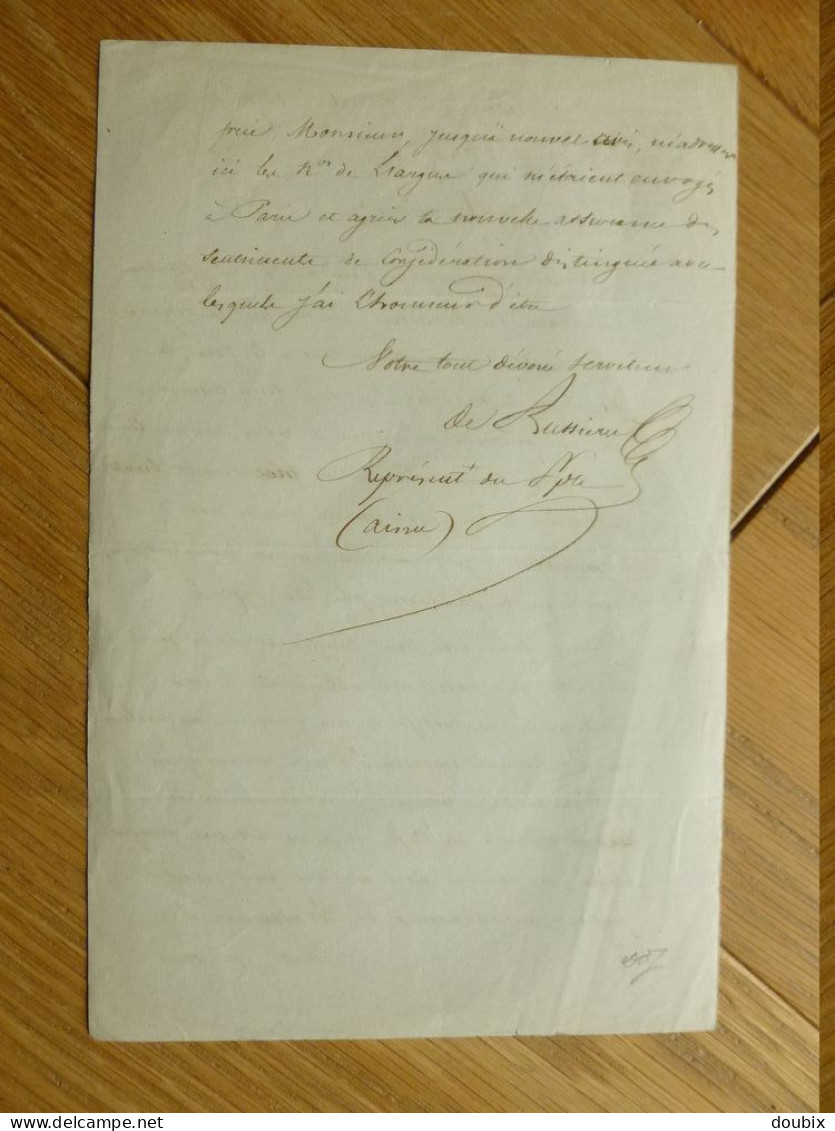 prie, Monsieur, jusqu'à nouvel avis, m'adresser
ici les Nos de L'argus qui m'étaient envoyés
à Paris et agréer la nouvelle assurance des
sentiments de Considération distinguée avec
lesquels j'ai L'honneur d'être
Votre tout dévoué serviteur
de Bussière
Représent.t du Peple
(aisne)
delcampe.net
doubix